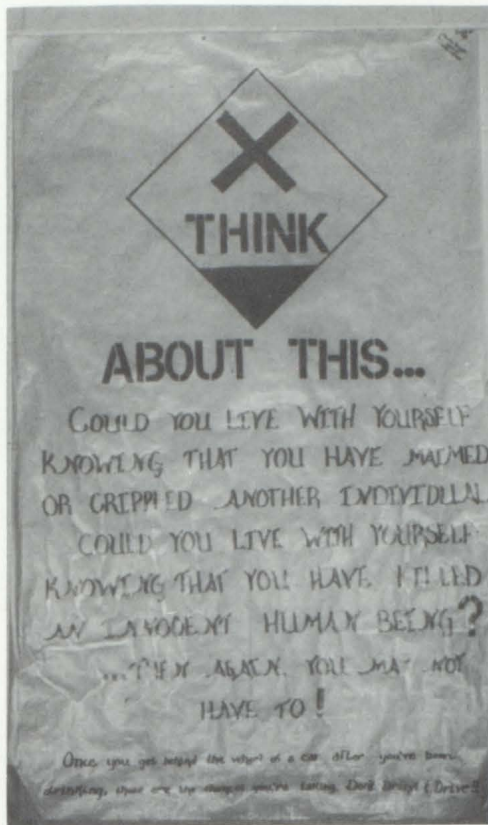 THINK
ABOUT THIS...
COULD YOU LIVE WITH YOURSELF
KNOWING THAT YOU HAVE MAIMED
OR CRIPPLED ANOTHER INDIVIDUAL.
COULD YOU LIVE WITH YOURSELF
KNOWING THAT YOU HAVE KILLED
AN INNOCENT HUMAN BEING?
...THEN AGAIN YOU MAY NOT
HAVE TO!
Once you get behind the wheel of a car after you've been
drinking, these are the chances you're taking. Don't Drink & Drive!!